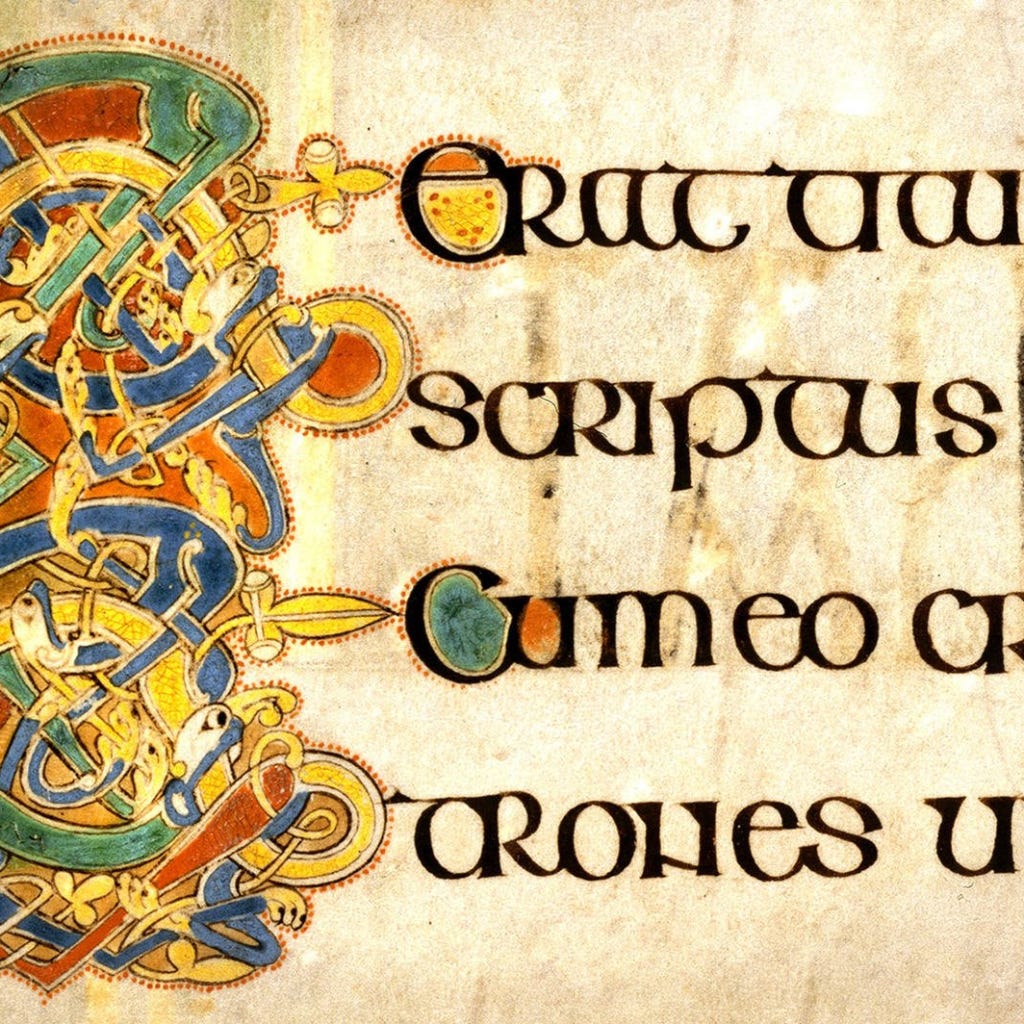 Erat titu
scriptus
Cum eo cr
trones u